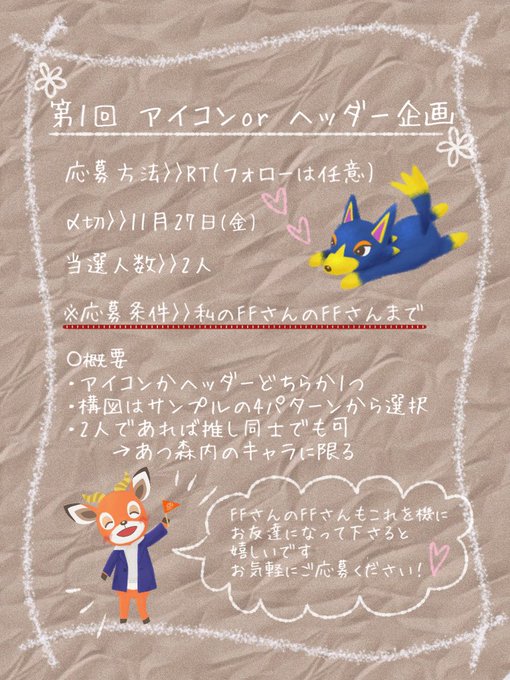 第1回 アイコンor ヘッダー企画
応募方法>>RT(フォローは任意)
〆切>>11月27日(金)
当選人数>>2人
※応募条件>>私のFFさんのFFさんまで
○概要
・アイコンかヘッダーどちらか1つ
・構図はサンプルの4パターンから選択
・2人であれば推し同士でも可
→あつ森内のキャラに限る
FFさんのFFさんもこれを機に
お友達になって下さると
嬉しいです
お気軽にご応募ください!